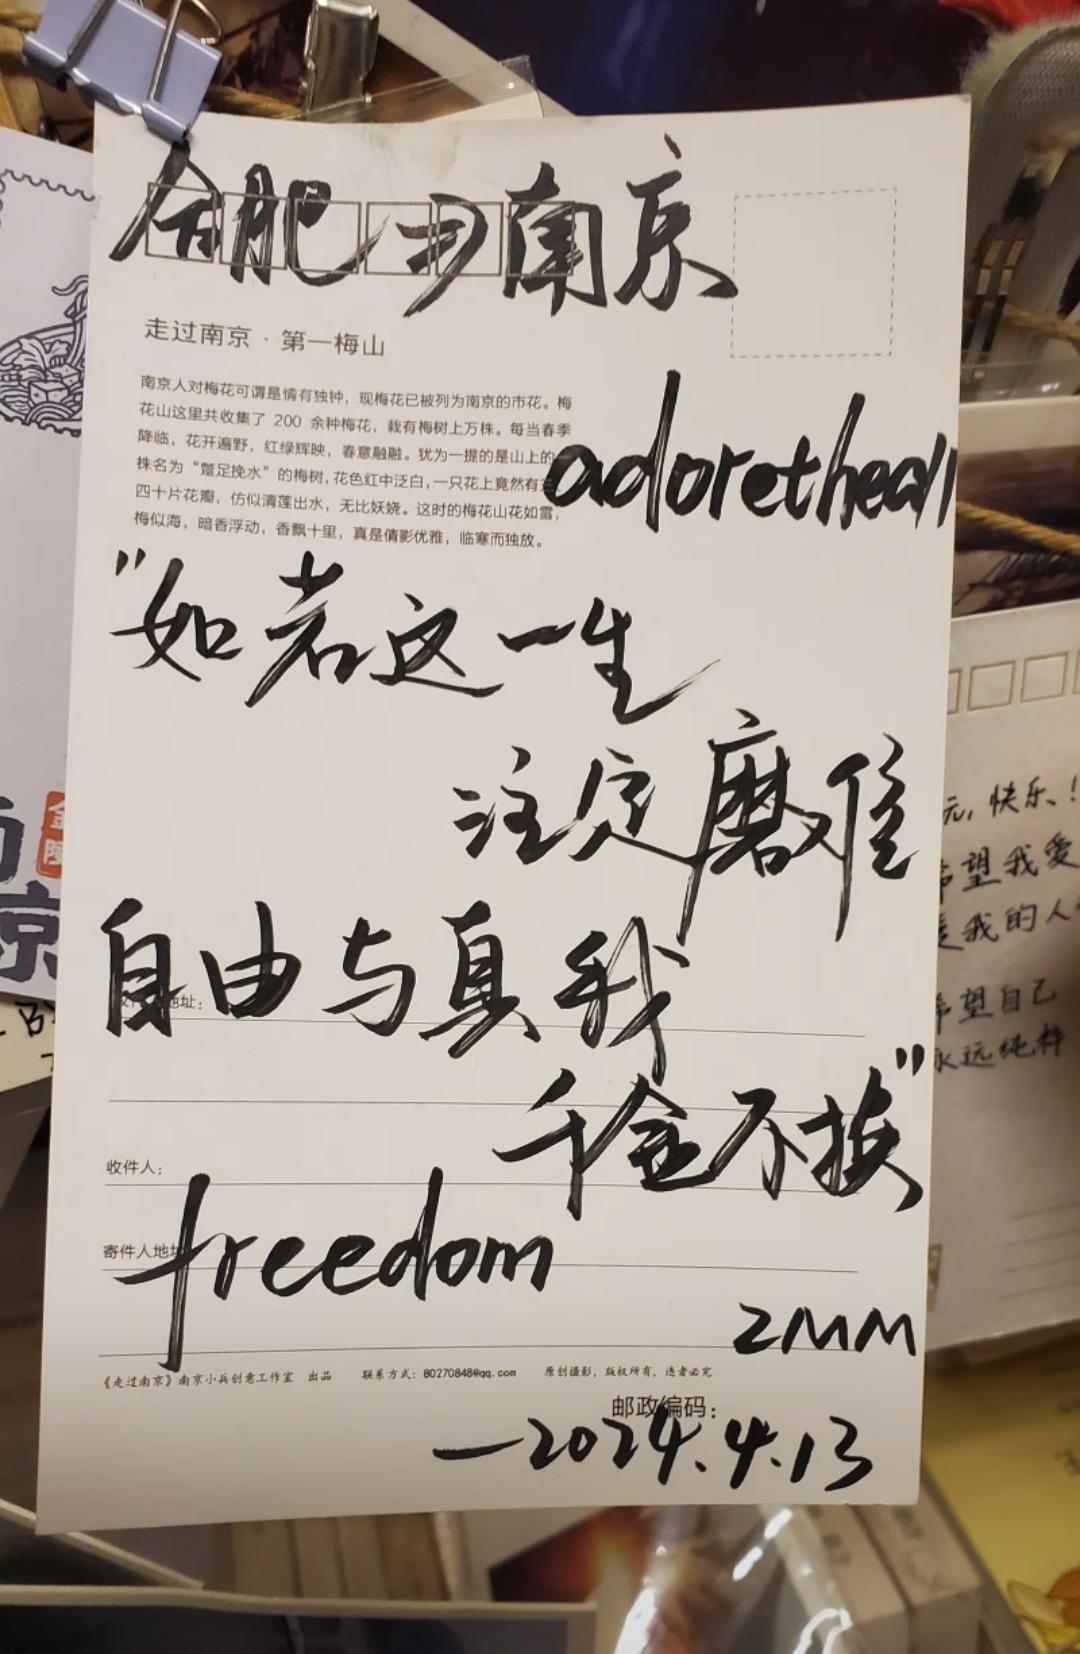 合肥 南京
走过南京·第一梅山
南京人对梅花可谓是情有独钟，现梅花已被列为南京的市花。梅
花山这里共收集了 200 余种梅花，栽有梅树上万株。每当春季
降临，花开遍野，红绿辉映，春意融融。犹为一提的是山上的
株名为“蹩足挽水”的梅树，花色红中泛白，一只花上竟然有
四十片花瓣，仿似清莲出水，无比妖娆。这时的梅花山花如雪，
梅似海，暗香浮动，香飘十里，真是倩影优雅，临寒而独放。
adorethean
"如若这一生
注定磨难
自由与真我
地址：
千金不换"
收件人：
freedom
寄件人地址
ZMM
《走过南京》南京小兵创意工作室 出品 联系方式：80270848@qq.com 原创摄影，版权所有，违者必究
邮政编码：
—2024.4.13
金陵
京
元，快乐！
希望我爱
我的人
希望自己
永远纯粹